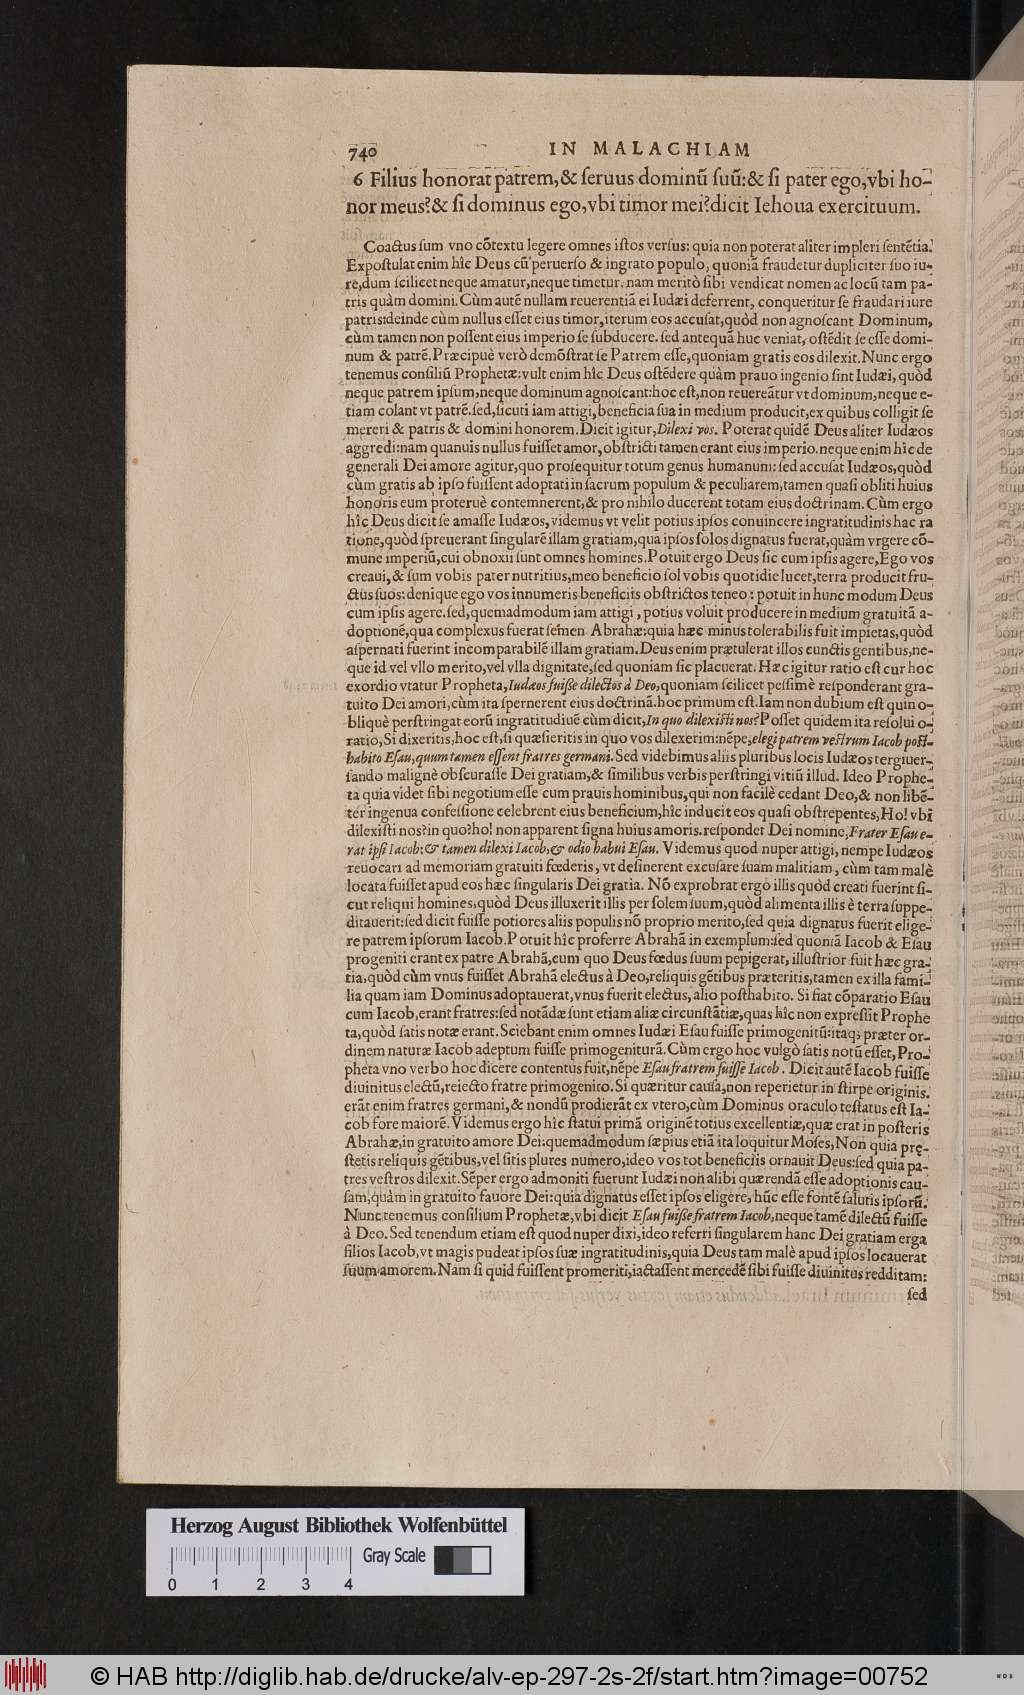 740 IN MALACHIAM
6 Filius honorat patrem,& ſeruus dominū ſuū:& ſi pater ego,vbi ho-
nor meus?& ſi dominus ego,vbi timor mei?dicit Iehoua exercituum.
Coactus ſum vno cōtextu legere omnes iſtos verſus: quia non poterat aliter impleri ſentētia.
Expoſtulat enim hîc Deus cū peruerſo & ingrato populo, quoniā fraudetur dupliciter ſuo iu-
re,dum ſcilicet neque amatur,neque timetur. nam meritò ſibi vendicat nomen ac locū tam pa-
tris quàm domini. Cùm autē nullam reuerentiā ei Iudæi deferrent, conqueritur ſe fraudari iure
patris:deinde cùm nullus eſſet eius timor,iterum eos accuſat,quòd non agnoſcant Dominum,
cùm tamen non poſſent eius imperio ſe ſubducere. ſed antequā huc veniat, oſtēdit ſe eſſe domi-
num & patrē.Præcipuè verò demōſtrat ſe Patrem eſſe,quoniam gratis eos dilexit.Nunc ergo
tenemus conſiliū Prophetæ:vult enim hîc Deus oſtēdere quàm prauo ingenio ſint Iudæi, quòd
neque patrem ipſum,neque dominum agnoſcant:hoc eſt,non reuereātur vt dominum,neque e-
tiam colant vt patrē.ſed,ſicuti iam attigi,beneficia ſua in medium producit,ex quibus colligit ſe
mereri & patris & domini honorem.Dicit igitur,Dilexi vos. Poterat quidē Deus aliter Iudæos
aggredi:nam quanuis nullus fuiſſet amor,obſtricti tamen erant eius imperio.neque enim hîc de
generali Dei amore agitur,quo proſequitur totum genus humanum: ſed accuſat Iudæos,quòd
cùm gratis ab ipſo fuiſſent adoptati in ſacrum populum & peculiarem,tamen quaſi obliti huius
honoris eum proteruè contemnerent,& pro nihilo ducerent totam eius doctrinam. Cùm ergo
hîc Deus dicit ſe amaſſe Iudæos,videmus vt velit potius ipſos conuincere ingratitudinis hac ra
tione,quòd ſpreuerant ſingularē illam gratiam,qua ipſos ſolos dignatus fuerat,quàm vrgere cō-
mune imperiū,cui obnoxii ſunt omnes homines.Potuit ergo Deus ſic cum ipſis agere,Ego vos
creaui,& ſum vobis pater nutritius,meo beneficio ſol vobis quotidie lucet,terra producit fru-
ctus ſuos: denique ego vos innumeris beneficiis obſtrictos teneo: potuit in hunc modum Deus
cum ipſis agere.ſed,quemadmodum iam attigi, potius voluit producere in medium gratuitā a-
doptionē,qua complexus fuerat ſemen Abrahæ:quia hæc minus tolerabilis fuit impietas,quòd
aſpernati fuerint incomparabilē illam gratiam.Deus enim prætulerat illos cunctis gentibus,ne-
que id vel vllo merito,vel vlla dignitate,ſed quoniam ſic placuerat. Hæc igitur ratio eſt cur hoc
exordio vtatur Propheta,Iudæos fuiſſe dilectos à Deo,quoniam ſcilicet peſſimè reſponderant gra-
tuito Dei amori,cùm ita ſpernerent eius doctrinā.hoc primum eſt.Iam non dubium eſt quin o-
bliquè perſtringat eorū ingratitudinē cùm dicit,In quo dilexiſti nos?Poſſet quidem ita reſolui o-
ratio,Si dixeritis,hoc eſt,ſi quæſieritis in quo vos dilexerim:nēpe,elegi patrem veſtrum Iacob poſt-
habito Eſau,quum tamen eſſent fratres germani.Sed videbimus aliis pluribus locis Iudæos tergiuer-
ſando malignè obſcuraſſe Dei gratiam,& ſimilibus verbis perſtringi vitiū illud. Ideo Prophe-
ta quia videt ſibi negotium eſſe cum prauis hominibus,qui non facilè cedant Deo,& non libē-
ter ingenua confeſſione celebrent eius beneficium,hîc inducit eos quaſi obſtrepentes,Ho! vbi
dilexiſti nos?in quo?ho! non apparent ſigna huius amoris.reſpondet Dei nomine,Frater Eſau e-
rat ipſi Iacob:& tamen dilexi Iacob,& odio habui Eſau. Videmus quod nuper attigi, nempe Iudæos
reuocari ad memoriam gratuiti fœderis, vt deſinerent excuſare ſuam malitiam, cùm tam malè
locata fuiſſet apud eos hæc ſingularis Dei gratia. Nō exprobrat ergo illis quòd creati fuerint ſi-
cut reliqui homines,quòd Deus illuxerit illis per ſolem ſuum,quòd alimenta illis è terra ſuppe-
ditauerit:ſed dicit fuiſſe potiores aliis populis nō proprio merito,ſed quia dignatus fuerit elige-
re patrem ipſorum Iacob.Potuit hîc proferre Abrahā in exemplum:ſed quoniā Iacob & Eſau
progeniti erant ex patre Abrahā,cum quo Deus fœdus ſuum pepigerat, illuſtrior fuit hæc gra-
tia,quòd cùm vnus fuiſſet Abrahā electus à Deo,reliquis gētibus præteritis,tamen ex illa fami-
lia quam iam Dominus adoptauerat,vnus fuerit electus,alio poſthabito. Si fiat cōparatio Eſau
cum Iacob,erant fratres:ſed notādæ ſunt etiam aliæ circunſtātiæ,quas hîc non expreſſit Prophe
ta,quòd ſatis notæ erant.Sciebant enim omnes Iudæi Eſau fuiſſe primogenitū:itaq; præter or-
dinem naturæ Iacob adeptum fuiſſe primogeniturā.Cùm ergo hoc vulgò ſatis notū eſſet,Pro-
pheta vno verbo hoc dicere contentus fuit,nēpe Eſau fratrem fuiſſe Iacob. Dicit autē Iacob fuiſſe
diuinitus electū,reiecto fratre primogenito.Si quæritur cauſa,non reperietur in ſtirpe originis.
erāt enim fratres germani,& nondū prodierāt ex vtero,cùm Dominus oraculo teſtatus eſt Ia-
cob fore maiorē.Videmus ergo hîc ſtatui primā originē totius excellentiæ,quæ erat in poſteris
Abrahæ,in gratuito amore Dei:quemadmodum ſæpius etiā ita loquitur Moſes,Non quia pre-
ſtetis reliquis gētibus,vel ſitis plures numero,ideo vos tot beneficiis ornauit Deus:ſed quia pa-
tres veſtros dilexit.Sēper ergo admoniti fuerunt Iudæi non alibi quærendā eſſe adoptionis cau-
ſam,quàm in gratuito fauore Dei:quia dignatus eſſet ipſos eligere, hūc eſſe fontē ſalutis ipſorū.
Nunc tenemus conſilium Prophetæ,vbi dicit Eſau fuiſſe fratrem Iacob,neque tamē dilectū fuiſſe
à Deo. Sed tenendum etiam eſt quod nuper dixi,ideo referri ſingularem hanc Dei gratiam erga
filios Iacob,vt magis pudeat ipſos ſuæ ingratitudinis,quia Deus tam malè apud ipſos locauerat
ſuum amorem.Nam ſi quid fuiſſent promeriti,iactaſſent mercedē ſibi fuiſſe diuinitus redditam:
ſed
Herzog August Bibliothek Wolfenbüttel
Gray Scale
0 1 2 3 4
© HAB http://diglib.hab.de/drucke/alv-ep-297-2s-2f/start.htm?image=00752